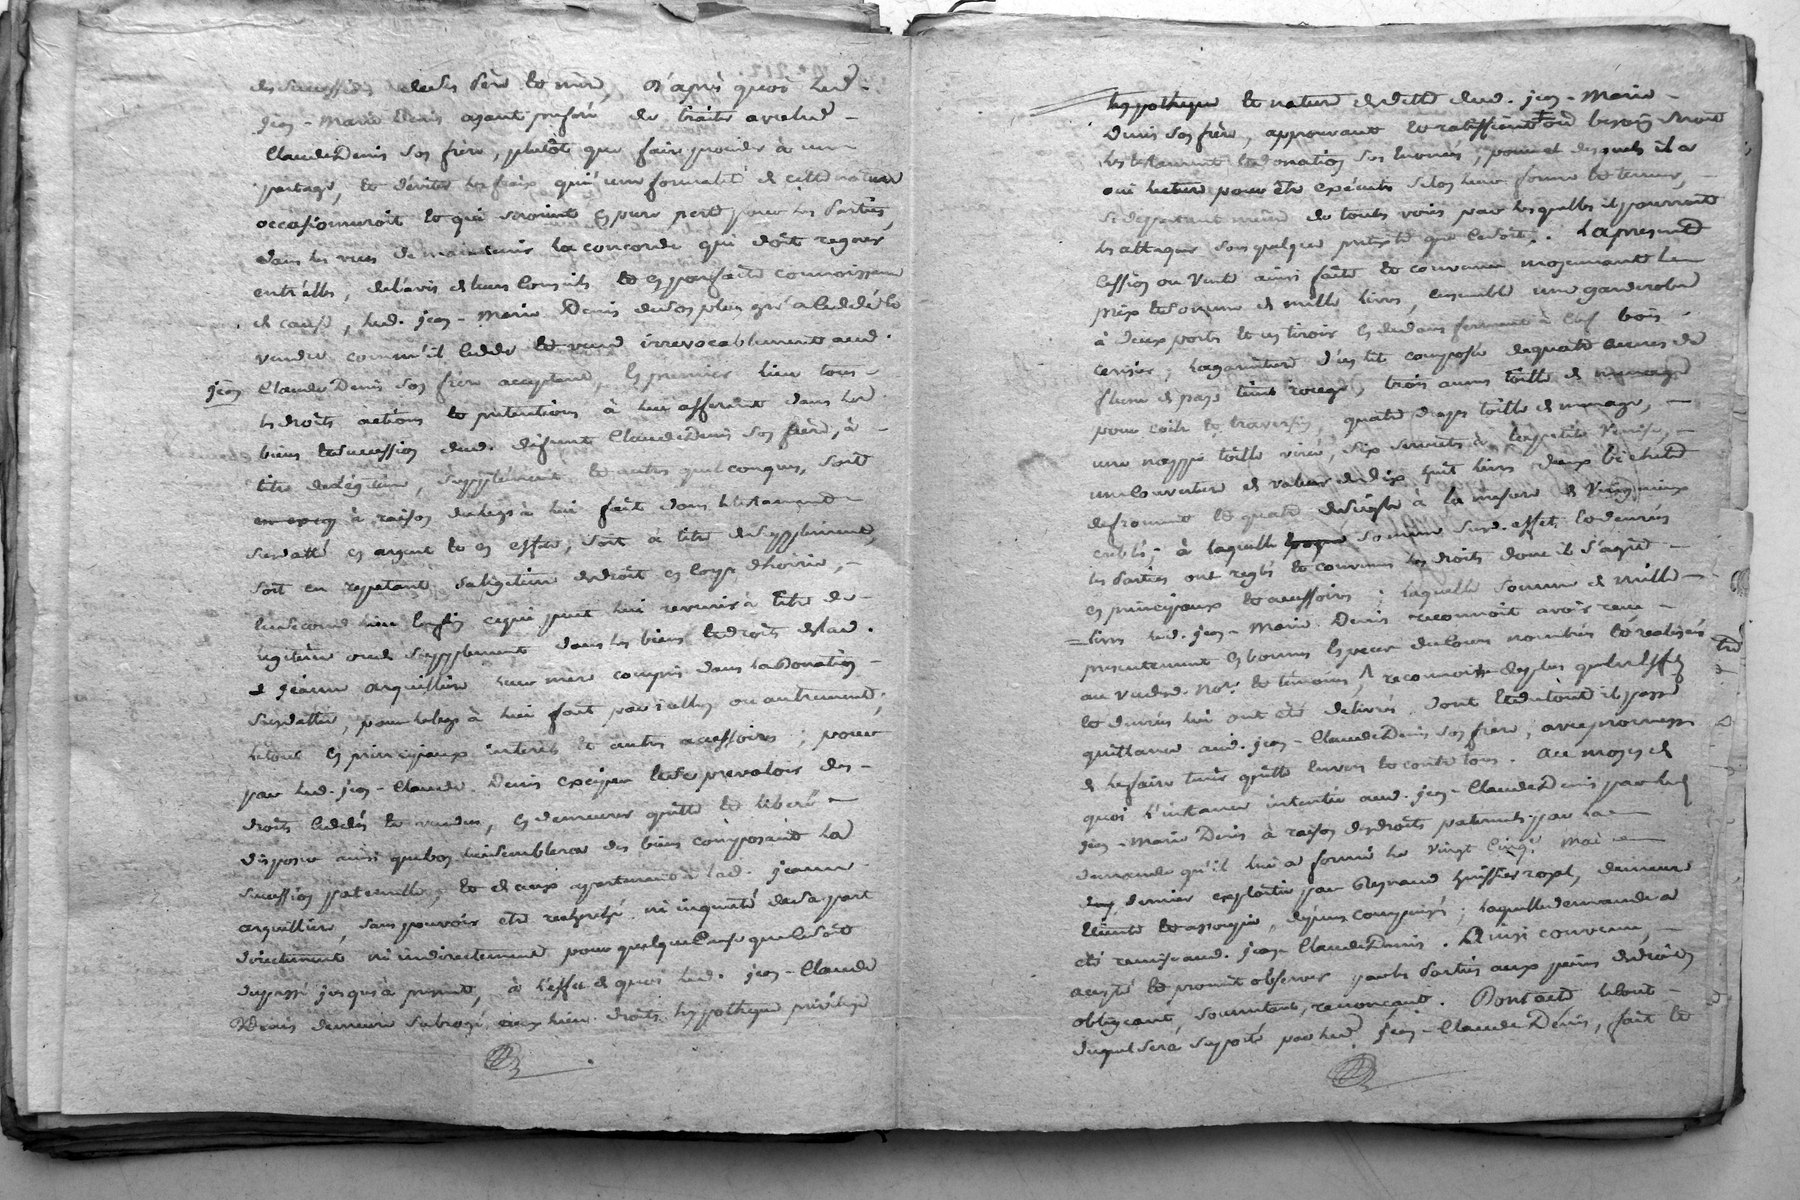 des successions desdits père et mère, D'après quoi led.
jean-Marie Denis ayant preferé de traiter avec led
Claude Denis son frère, plutôt que faire proceder à un
partage, et d'eviter les fraix qu'une formalité de cette nature
occasionneroit et qui seroient en pure perte pour les parties,
dans les vues de maintenir la concorde qui doit regner
entr'elles, de l'avis de leurs conseils et en parfaite connoissance
de cause, led. jean-Marie Denis de son plein gré a cedé et
vendu comm'il cedde et vend irrevocablement aud.
jean Claude Denis son frère acceptant, en premier lieu tous
les droits actions et pretentions à lui afferant dans les
biens et succession dud. défunt Claude Denis son père, à
titre de légitime, supplément et autres quelconques, soit
à raison du legs à lui fait dans le testament
susdatté en argent et en effet, soit à titre de supplément,
soit en repetant sa legitime de droit en corps d'hoirie,
en second lieu ce qui peut lui revenir à titre de
legitime ou de supplement dans les biens et droits de lad.
jeanne arquilliere leur mère compris dans la Donation
susdattée, pour le legs à lui fait par icelle, ou autrement,
le tout en principaux interets et autres accessoires; pour
par led. jean-Claude Denis exciper et se prevaloir des
droits cedés et vendus, en demeurer quitte et liberé
disposer ainsi que bon lui semblera des biens composant la
succession paternelle, et de ceux appartenant à lad. jeanne
arquilliere, sans pouvoir etre recherché ni inquieté de sa part
directement ni indirectement pour quelque cause que ce soit
du passé jusqu'à present, à l'effet de quoi led. jean-Claude
Denis demeure subrogé, aux lieu droits hypotheque privilege
hypotheque et nature de dette dud. jean-Marie
Denis son frère, approuvant et ratiffiant où besoin seroit
les testament et donation sus enoncés, desquels il a
oui lecture pour être executés selon leur forme et teneur,
se departant même de toutes voies par lesquelles il pourroit
les attaquer sous quelque pretexte que ce soit. La presente
Cession ou Vente ainsi faite et convenue moyennant le
prix et somme de mille livres, ensemble une garderobe
à deux portes et un tiroir en dedans fermant à clef bois
cerisier, la garniture d'un lit composée de quatre aunes de
pays teint rouge, trois aunes toille de menage
pour coite et traversin, quatre draps toille de menage,
une nappe toille, six serviettes à la petite Venise,
une couverture de valeur de dix huit livres deux bichets
de froment et quatre de seigle à la mesure de
criblé; à laquelle somme susd. effet et denrées
les parties ont reglé et convenu les droits dont il s'agit
en principaux et accessoires; laquelle somme de mille
livres led. jean-Marie Denis reconnoit avoir reçu
presentement en bonnes especes de cours nombrées et réalisées
au vu desd. Not.es et temoins, reconnoit de plus que les effets
et denrées lui ont été delivrés, dont et du tout il passe
quittance aud. jean-Claude Denis son frère, avec promesse
de le faire tenir quitte envers et contre tous. Au moyen de
quoi l'instance intentée aud. jean-Claude Denis par led.
jean-Marie Denis à raison des droits paternels par la
demande qu'il lui a formé le vingt cinq. mai
dernier exploitée par Reynaud huissier royal, demeure
éteinte et assoupie, depens compensés; laquelle demande a
été remise aud. jean-Claude Denis. Ainsi convenu,
accepté et promit observer par les parties aux peines de droit
obligeant, soumettant, renonçant. Dont acte le cout
duquel sera suporté par led. jean-Claude Denis, fait et